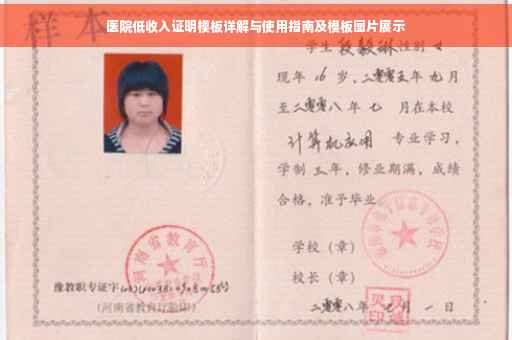 医院低收入证明模板详解与使用指南及模板图片展示
样本
学生段毅琳性别女
现年16岁，二零零五年九月
至二零零八年七月在本校
计算机应用 专业学习，
学制三年，修业期满，成绩
合格，准予毕业。
学校（章）
校长（章）
二零零八年七月一日
河南省教育厅
豫教职专证字
（河南省教育厅验印）